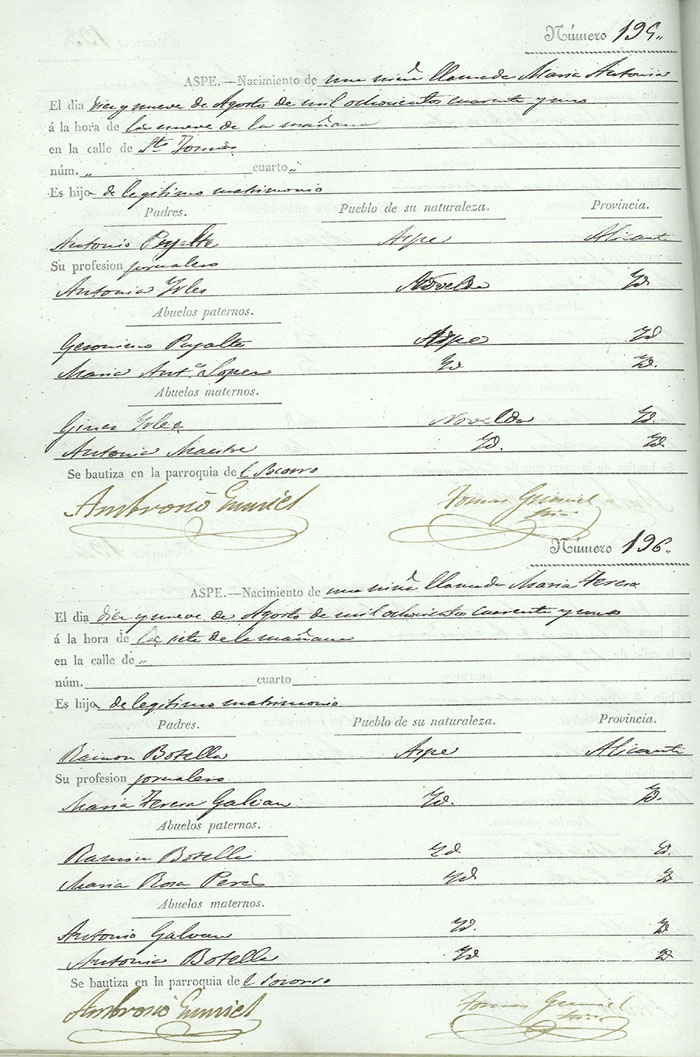 Número 195.
ASPE.—Nacimiento de una niña llamada Maria Antonia
El dia diez y nueve de Agosto de mil ochocientos cuarenta y uno
á la hora de las nueve de la mañana
en la calle de Sto Tomás
núm. „ cuarto „
Es hija de legitimo matrimonio
Padres. Pueblo de su naturaleza. Provincia.
Antonio Pujalte Aspe Alicante
Su profesion jornalero
Antonia Novelda Yd.
Abuelos paternos.
Geronimo Pujalte Aspe Yd
Maria Anta Lopez Yd Yd.
Abuelos maternos.
Gines Novelda Yd.
Antonia Maestre Yd. Yd.
Se bautiza en la parroquia de l Socorro
Ambrosio Gumiel Tomas Gumiel
Srio
Número 196.
ASPE.—Nacimiento de una niña llamada Maria Teresa
El dia diez y nueve de Agosto de mil ochocientos cuarenta y uno
á la hora de las siete de la mañana
en la calle de „
núm. cuarto
Es hija de legitimo matrimonio
Padres. Pueblo de su naturaleza. Provincia.
Ramon Botella Aspe Alicante
Su profesion jornalero
Maria Teresa Galvan Yd. Yd.
Abuelos paternos.
Ramon Botella Yd Yd.
Maria Rosa Perez Yd Yd
Abuelos maternos.
Antonio Galvan Yd. Yd
Antonia Botella Yd Yd
Se bautiza en la parroquia de l Socorro
Ambrosio Gumiel Tomas Gumiel
Srio